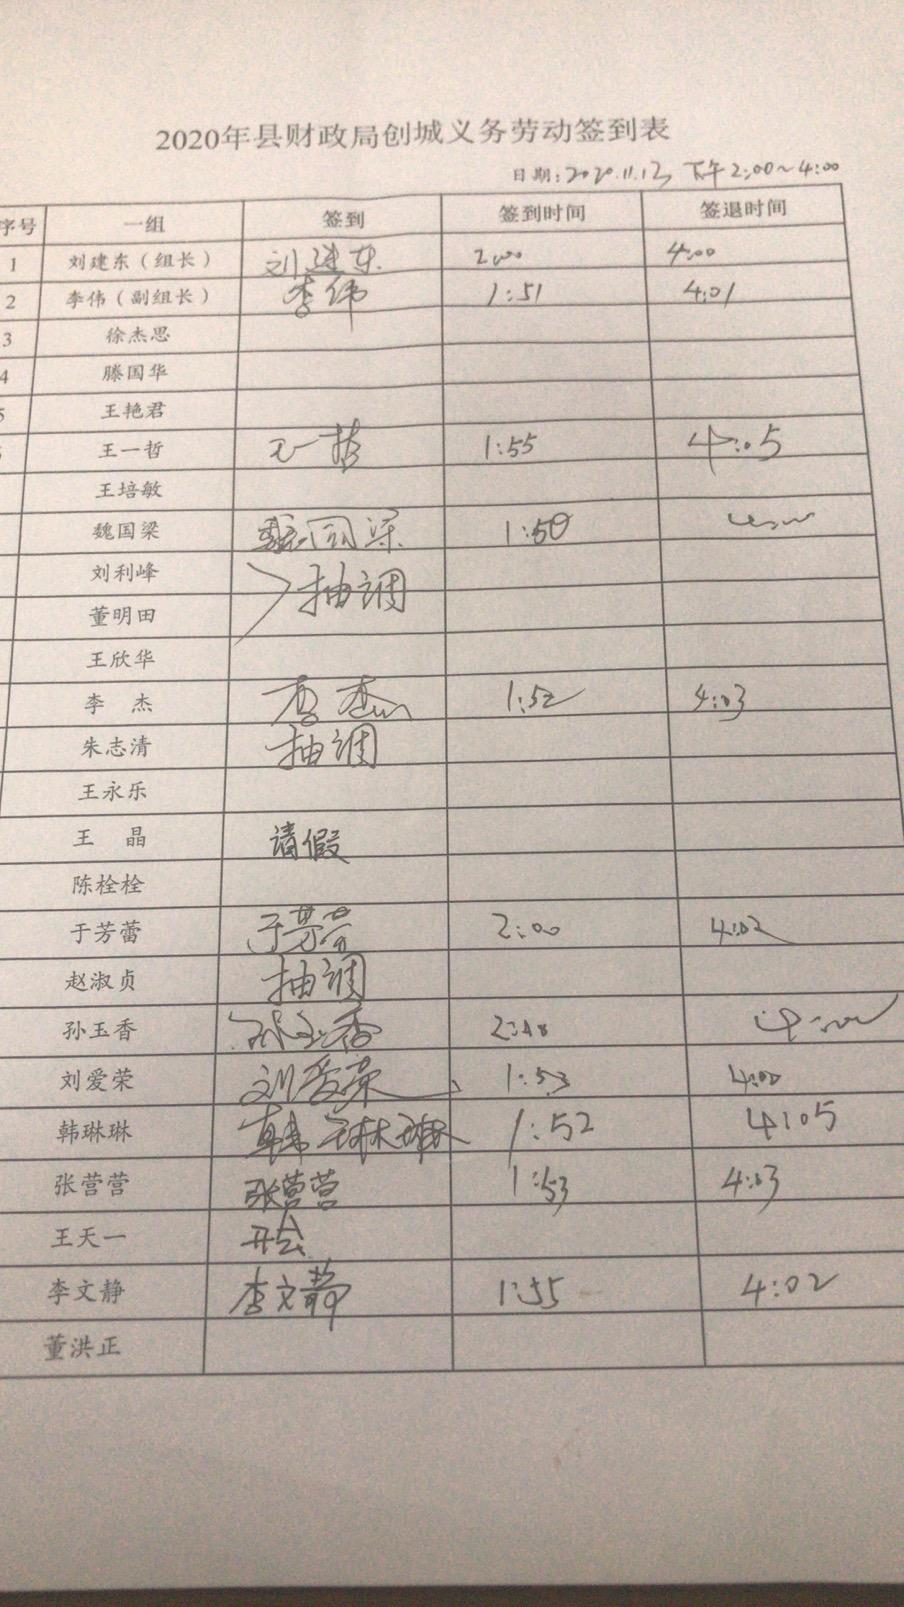 2020年县财政局创城义务劳动签到表
日期:2020.11.13 下午2:00~4:00
序号 一组 签到 签到时间 签退时间
1 刘建东（组长） 刘建东 2:00 4:00
2 李伟（副组长） 李伟 1:51 4:01
3 徐杰思
4 滕国华
5 王艳君
王一哲 王一哲 1:55 4:05
王培敏
魏国梁 魏国梁 1:50 4:00
刘利峰 抽调
董明田
王欣华
李 杰 李杰 1:52 4:03
朱志清 抽调
王永乐
王 晶 请假
陈栓栓
于芳蕾 于芳蕾 2:00 4:02
赵淑贞 抽调
孙玉香 孙玉香 4:00
刘爱荣 刘爱荣 1:53 4:00
韩琳琳 韩琳琳 1:52 4:05
张营营 张营营 1:53 4:03
王天一 开会
李文静 李文静 1:55 4:02
董洪正